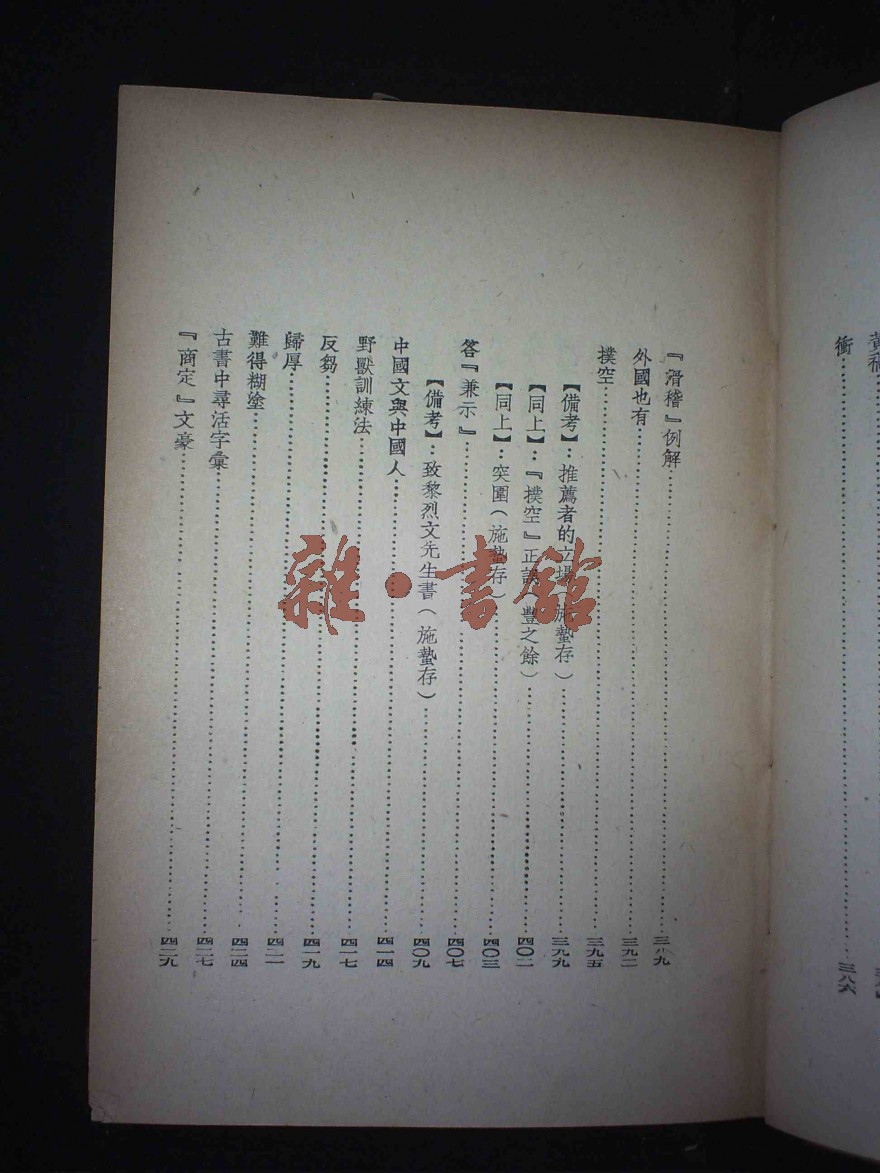 衝……三八六
『滑稽』例解……三八九
外國也有……三九二
撲空……三九五
【備考】：推薦者的立場（施蟄存）……三九九
【同上】：『撲空』正誤（豐之餘）……四〇二
【同上】：突圍（施蟄存）……四〇三
答『兼示』……四〇七
【備考】：致黎烈文先生書（施蟄存）……四〇九
中國文與中國人……四一四
野獸訓練法……四一七
反芻……四一九
歸厚……四二一
難得糊塗……四二四
古書中尋活字彙……四二七
『商定』文豪……四二九
雜·書館